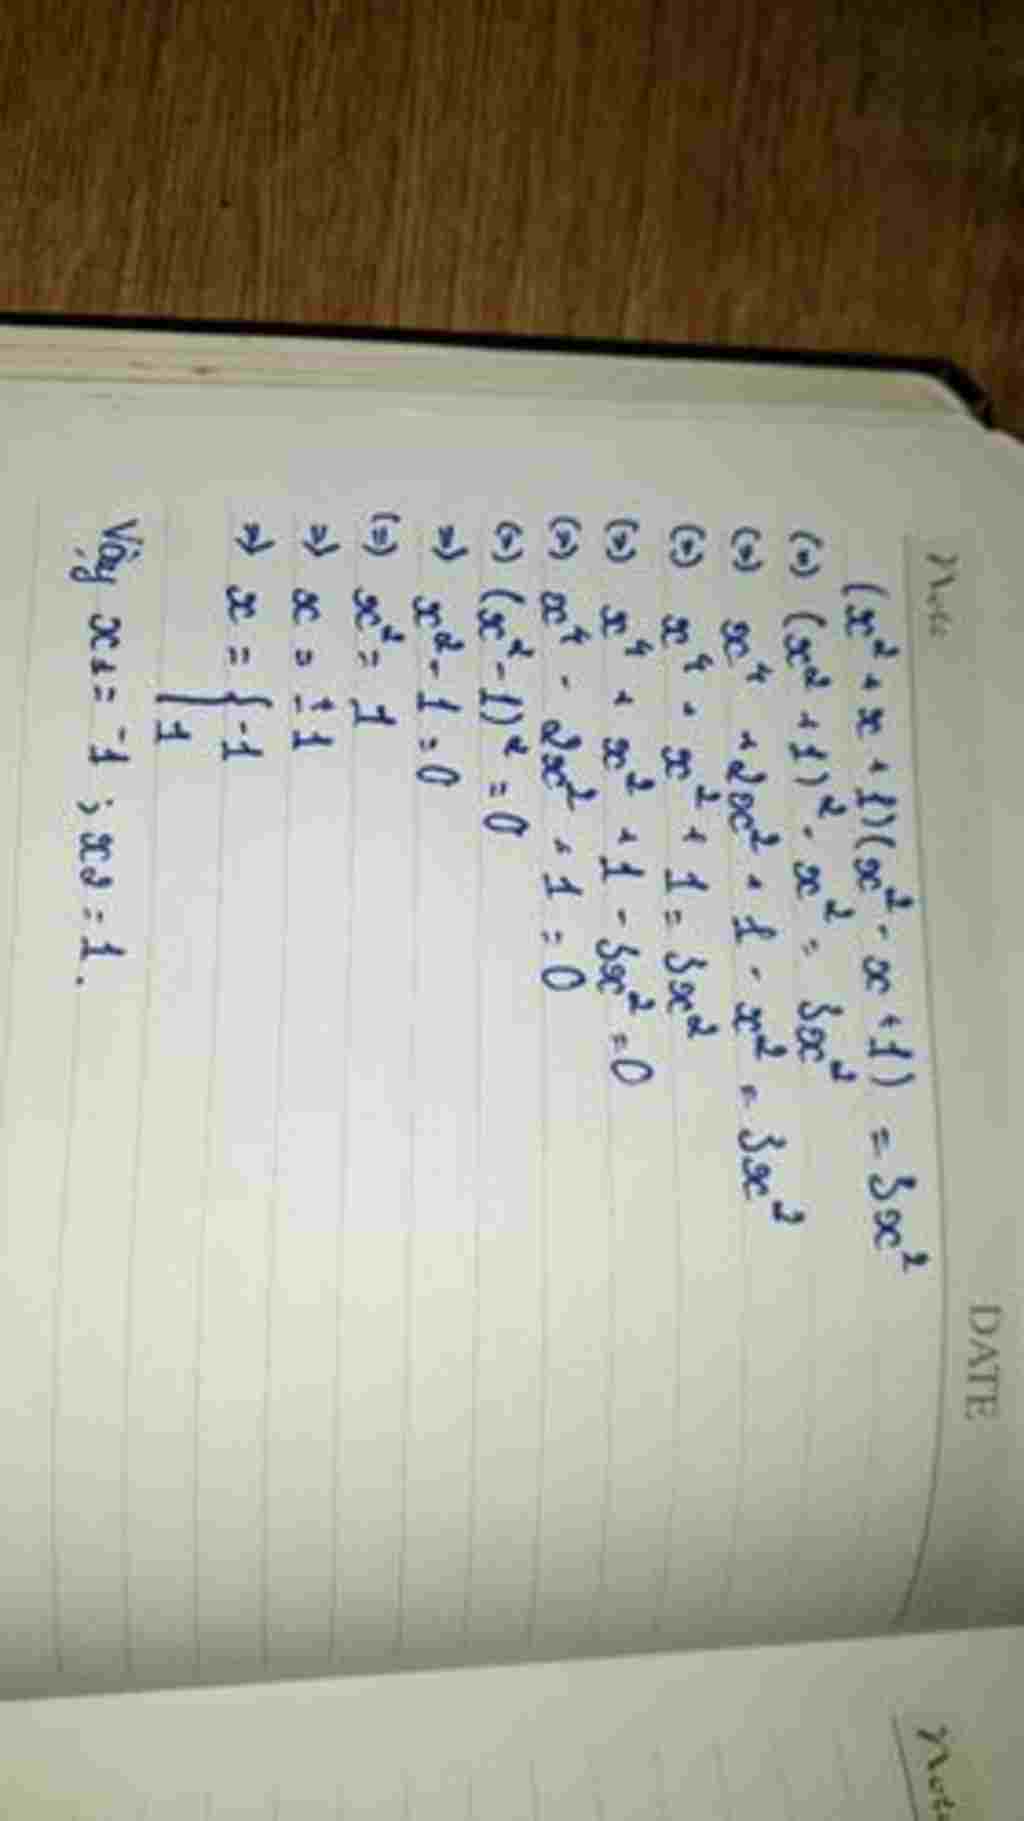 Note
DATE
(x² + x + 1)(x² - x + 1) = 3x²
(=) (x² + 1)² - x² = 3x²
(=) x⁴ + 2x² + 1 - x² = 3x²
(=) x⁴ + x² + 1 = 3x²
(=) x⁴ + x² + 1 - 3x² = 0
(=) x⁴ - 2x² + 1 = 0
(=) (x² - 1)² = 0
=) x² - 1 = 0
(=) x² = 1
=) x = ±1
=) x = { -1
1
Vậy x₁ = -1 ; x₂ = 1.
Note